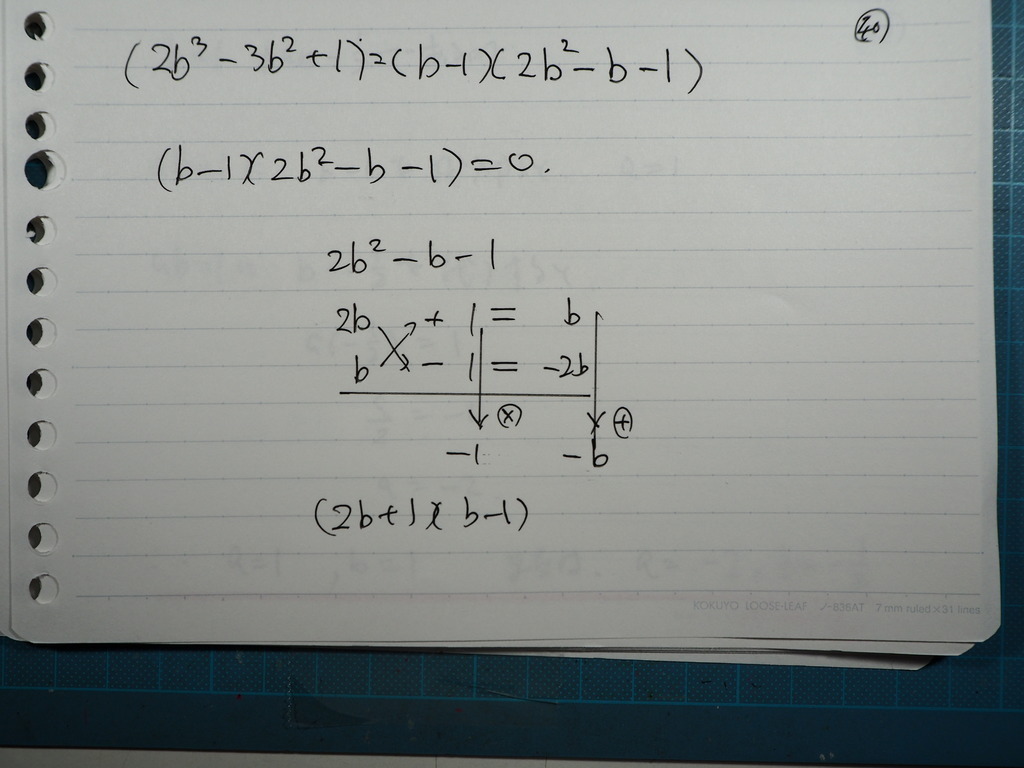 40
(2b³ - 3b² + 1) = (b-1)(2b² - b - 1)
(b-1)(2b² - b - 1) = 0.
2b² - b - 1
2b + 1 = b
b - 1 = -2b
⊗ ⊕
-1 -b
(2b+1)(b-1)
KOKUYO LOOSE-LEAF ノ-836AT 7 mm ruled×31 lines